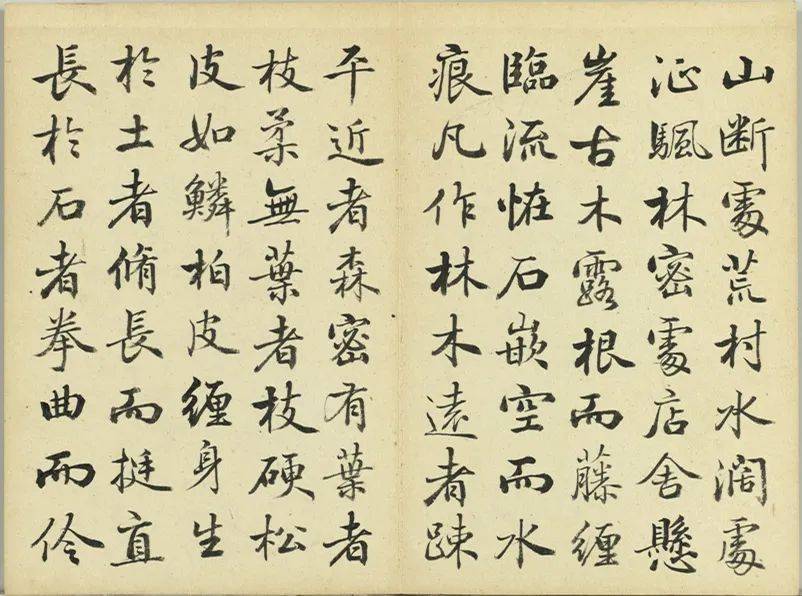 山断處荒村水濶處
征颿林密處店舍懸
崖古木露根而藤纏
臨流恠石嵌空而水
痕凡作林木遠者踈
平近者森密有葉者
枝柔無葉者枝硬松
皮如鱗柏皮纏身生
於土者脩長而挺直
長於石者拳曲而伶